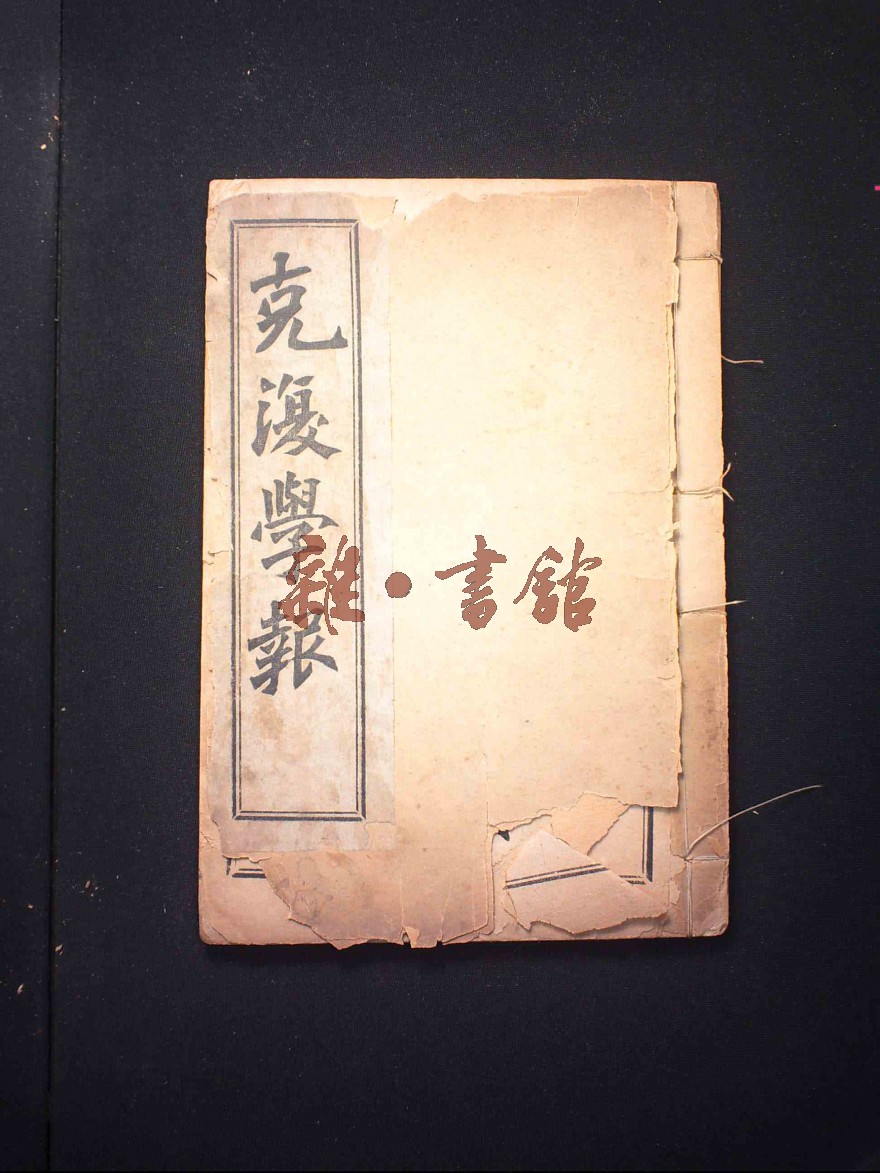 克復學報
雜·書館